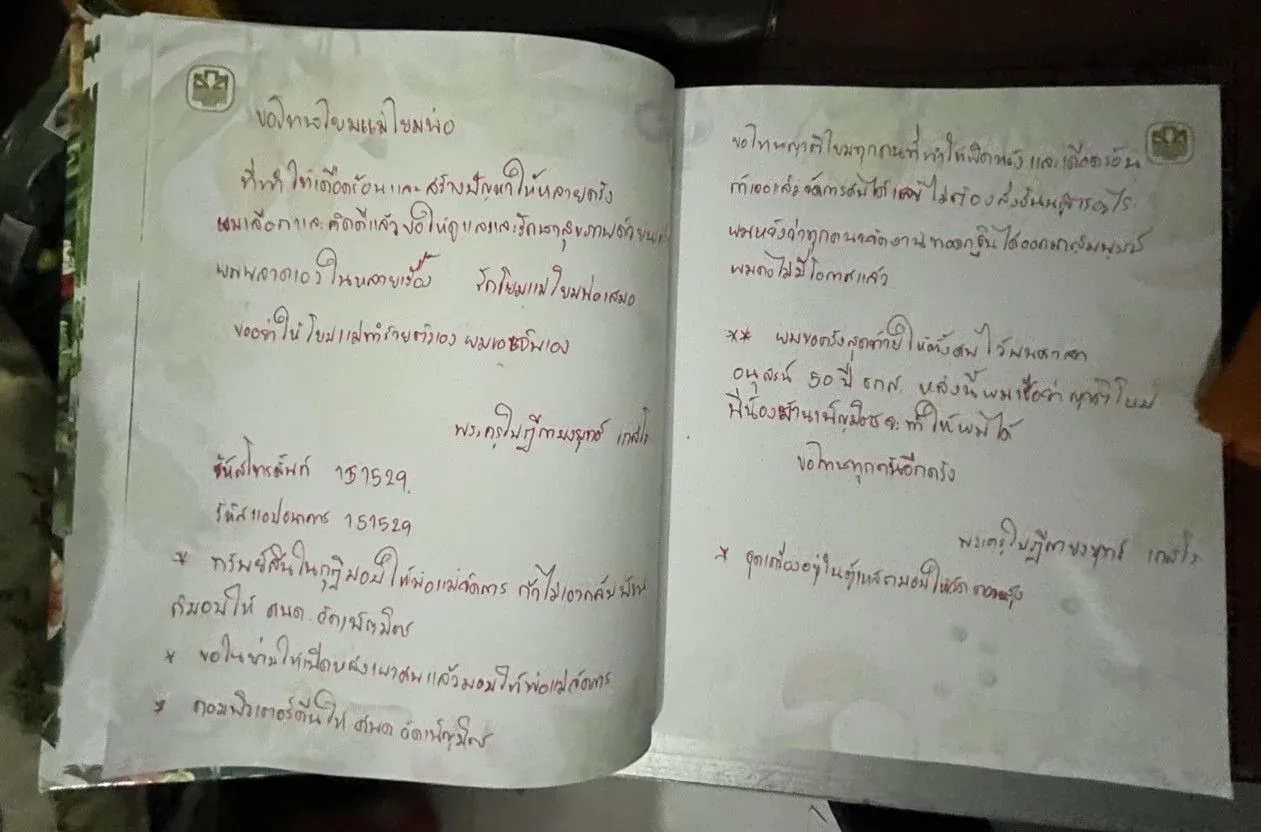 ขอโทษโยมแม่โยมพ่อ
ที่ทำให้เดือดร้อนและสร้างปัญหาให้หลายครั้ง
ผมเลือกและคิดดีแล้ว ขอให้ดูแลและรักษาสุขภาพด้วย
ผมพลาดเองในหลายเรื่อง รักโยมแม่โยมพ่อเสมอ
ขออย่าให้โยมแม่ทำร้ายตัวเอง ผม
พระครูใบฎีกา
รหัสโทรศัพท์ 151529
รหัสแอปธนาคาร 151529
* ทรัพย์สินในกุฏิมอบให้พ่อแม่จัดการ ถ้าไม่เอากลับ
ก็มอบให้
* ขอในย่ามให้เปิดหลังเผาศพแล้วมอบให้พ่อแม่จัดการ
* คอมพิวเตอร์คืนให้
ขอโทษญาติโยมทุกคนที่ทำให้ผิดหวังและเดือดร้อน
ถ้าเจอแล้วจัดการศพได้เลย ไม่ต้องส่งชันสูตรอะไร
ผมหวังว่าทุกคนจะจัดงานทอดกฐินได้ออกมาสมบูรณ์
ผมคงไม่มีโอกาสแล้ว
** ผมขอครั้งสุดท้ายให้ตั้งศพไว้บนศาลา
อนุสรณ์ 50 ปี ธกส. หลังนี้ผมเชื่อว่าญาติโยม
พี่น้องบ้านจะทำให้ผมได้
ขอโทษทุกคนอีกครั้ง
พระครูใบฎีกา
* มอบให้วัด